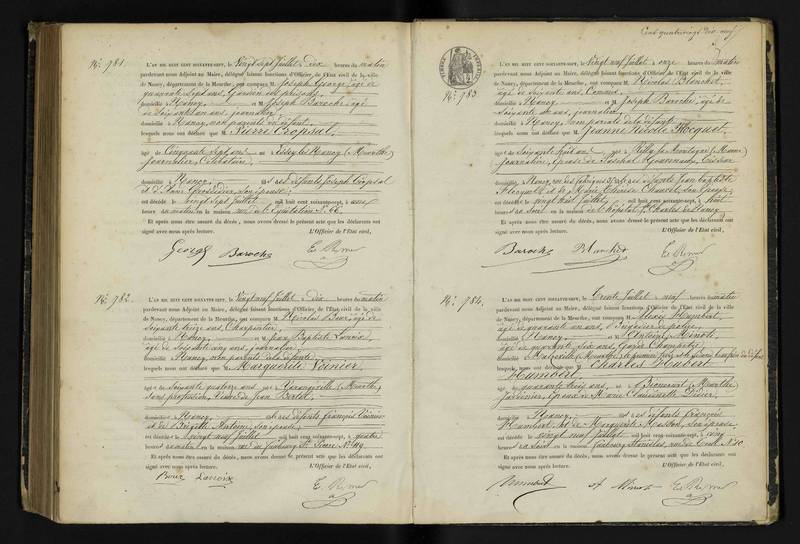 N.º 981.
L'AN MIL HUIT CENT SOIXANTE-SEPT, le Vingt sept Juillet à dix heures du matin
pardevant nous Adjoint au Maire, délégué faisant fonctions d'Officier de l'Etat civil de la ville
de Nancy, département de la Meurthe, ont comparu M. Joseph George, âgé de
quarante sept ans, Gardien des prisons,
domicilié à Nancy, et M. Joseph Baroche, âgé
de soixante ans, journalier,
domicilié à Nancy, non parents du défunt,
lesquels nous ont déclaré que M. Pierre Cropsal,
âgé de Cinquante sept ans né à Essey lès Nancy (Meurthe)
journalier, Célibataire,
domicilié à Nancy fils des défunts Joseph Cropsal
et d'Anne Grosdidier, son épouse;
est décédé le vingt sept Juillet mil huit cent soixante-sept, à une
heure du matin en la maison
Et après nous être assuré du décès, nous avons dressé le présent acte que les déclarants ont
signé avec nous après lecture. L'Officier de l'Etat civil,
George Baroche
N.º 982.
L'AN MIL HUIT CENT SOIXANTE-SEPT, le Vingt neuf Juillet à dix heures du matin
pardevant nous Adjoint au Maire, délégué faisant fonctions d'Officier de l'Etat civil de la ville
de Nancy, département de la Meurthe, ont comparu M. Nicolas Boux, âgé de
soixante treize ans, Charpentier,
domicilié à Nancy, et M. Jean Baptiste Lacroix,
âgé de soixante cinq ans, journalier,
domicilié à Nancy, non parents de la défunte,
lesquels nous ont déclaré que M. Marguerite Voinier,
âgée de soixante quatorze ans née à Varangéville (Meurthe)
sans profession, Veuve de Jean Bertot,
domiciliée à Nancy fille des défunts françois Voinier
et de Brigitte Antoine, son épouse;
est décédée le vingt neuf Juillet mil huit cent soixante-sept, à quatre
heures du matin en la maison rue du faubourg St. Pierre N.º 119.
Et après nous être assuré du décès, nous avons dressé le présent acte que les déclarants ont
signé avec nous après lecture. L'Officier de l'Etat civil,
Boux Lacroix
Cent quatrevingt dix neuf
N.º 983.
L'AN MIL HUIT CENT SOIXANTE-SEPT, le Vingt neuf Juillet à onze heures du matin
pardevant nous Adjoint au Maire, délégué faisant fonctions d'Officier de l'Etat civil de la ville
de Nancy, département de la Meurthe, ont comparu M. Nicolas Blanchet,
âgé de soixante ans, Commis,
domicilié à Nancy et M. Joseph Baroche, âgé de
soixante ans, journalier,
domicilié à Nancy, non parents de la défunte
lesquels nous ont déclaré que M. Jeanne Nicolle Hocquet,
âgée de soixante huit ans née à Rilly la Montagne (Marne)
journalière, épouse de Paschal
domiciliée à Nancy, fille des défunts Jean Baptiste
Hocquet et de Marie Thérèse Chauvet, son épouse;
est décédée le vingt huit Juillet mil huit cent soixante-sept, à huit
heures du soir en la maison de l'hôpital St. Charles de Nancy,
Et après nous être assuré du décès, nous avons dressé le présent acte que les déclarants ont
signé avec nous après lecture. L'Officier de l'Etat civil,
Baroche Blanchet
N.º 984.
L'AN MIL HUIT CENT SOIXANTE-SEPT, le Trente Juillet à neuf heures du matin
pardevant nous Adjoint au Maire, délégué faisant fonctions d'Officier de l'Etat civil de la ville
de Nancy, département de la Meurthe, ont comparu M. Alexis Humbert,
âgé de quarante un ans,
domicilié à Nancy et M. Antoine Minot,
âgé de quarante six ans, Garde Champêtre,
domicilié à Malzéville (Meurthe), le premier frère et le second beau frère du défunt,
lesquels nous ont déclaré que M. Charles Hubert
Humbert,
âgé de quarante trois ans, né à (Meurthe)
Jardinier, époux de Marie
domicilié à Nancy, fils des défunts françois
Humbert, et de Marguerite Masson, son épouse;
est décédé le vingt neuf Juillet mil huit cent soixante-sept, à cinq
heures du soir en la maison faubourg Stanislas,
Et après nous être assuré du décès, nous avons dressé le présent acte que les déclarants ont
signé avec nous après lecture. L'Officier de l'Etat civil,
Humbert A Minot